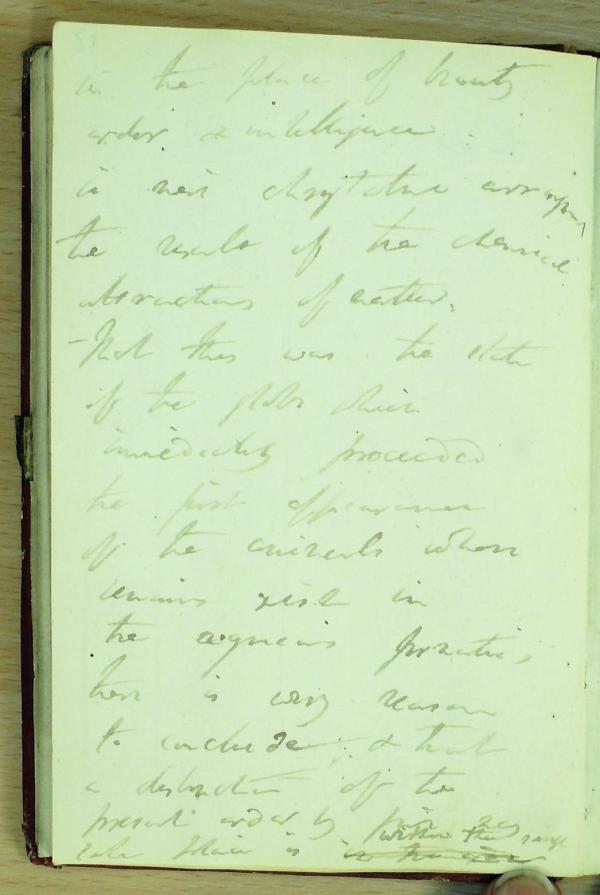 in the place of beauty
order & intelligence
in their chrystalline arrangement
the result of the chemical
attractions of matter.
- That this was the state
of the globe which
immediately proceeded
the first appearance
of the animals whose
remains exist in
the aqueous formations,
there is every reason
to conclude; & that
a destruction of the
present order by fire may
take place is within the range